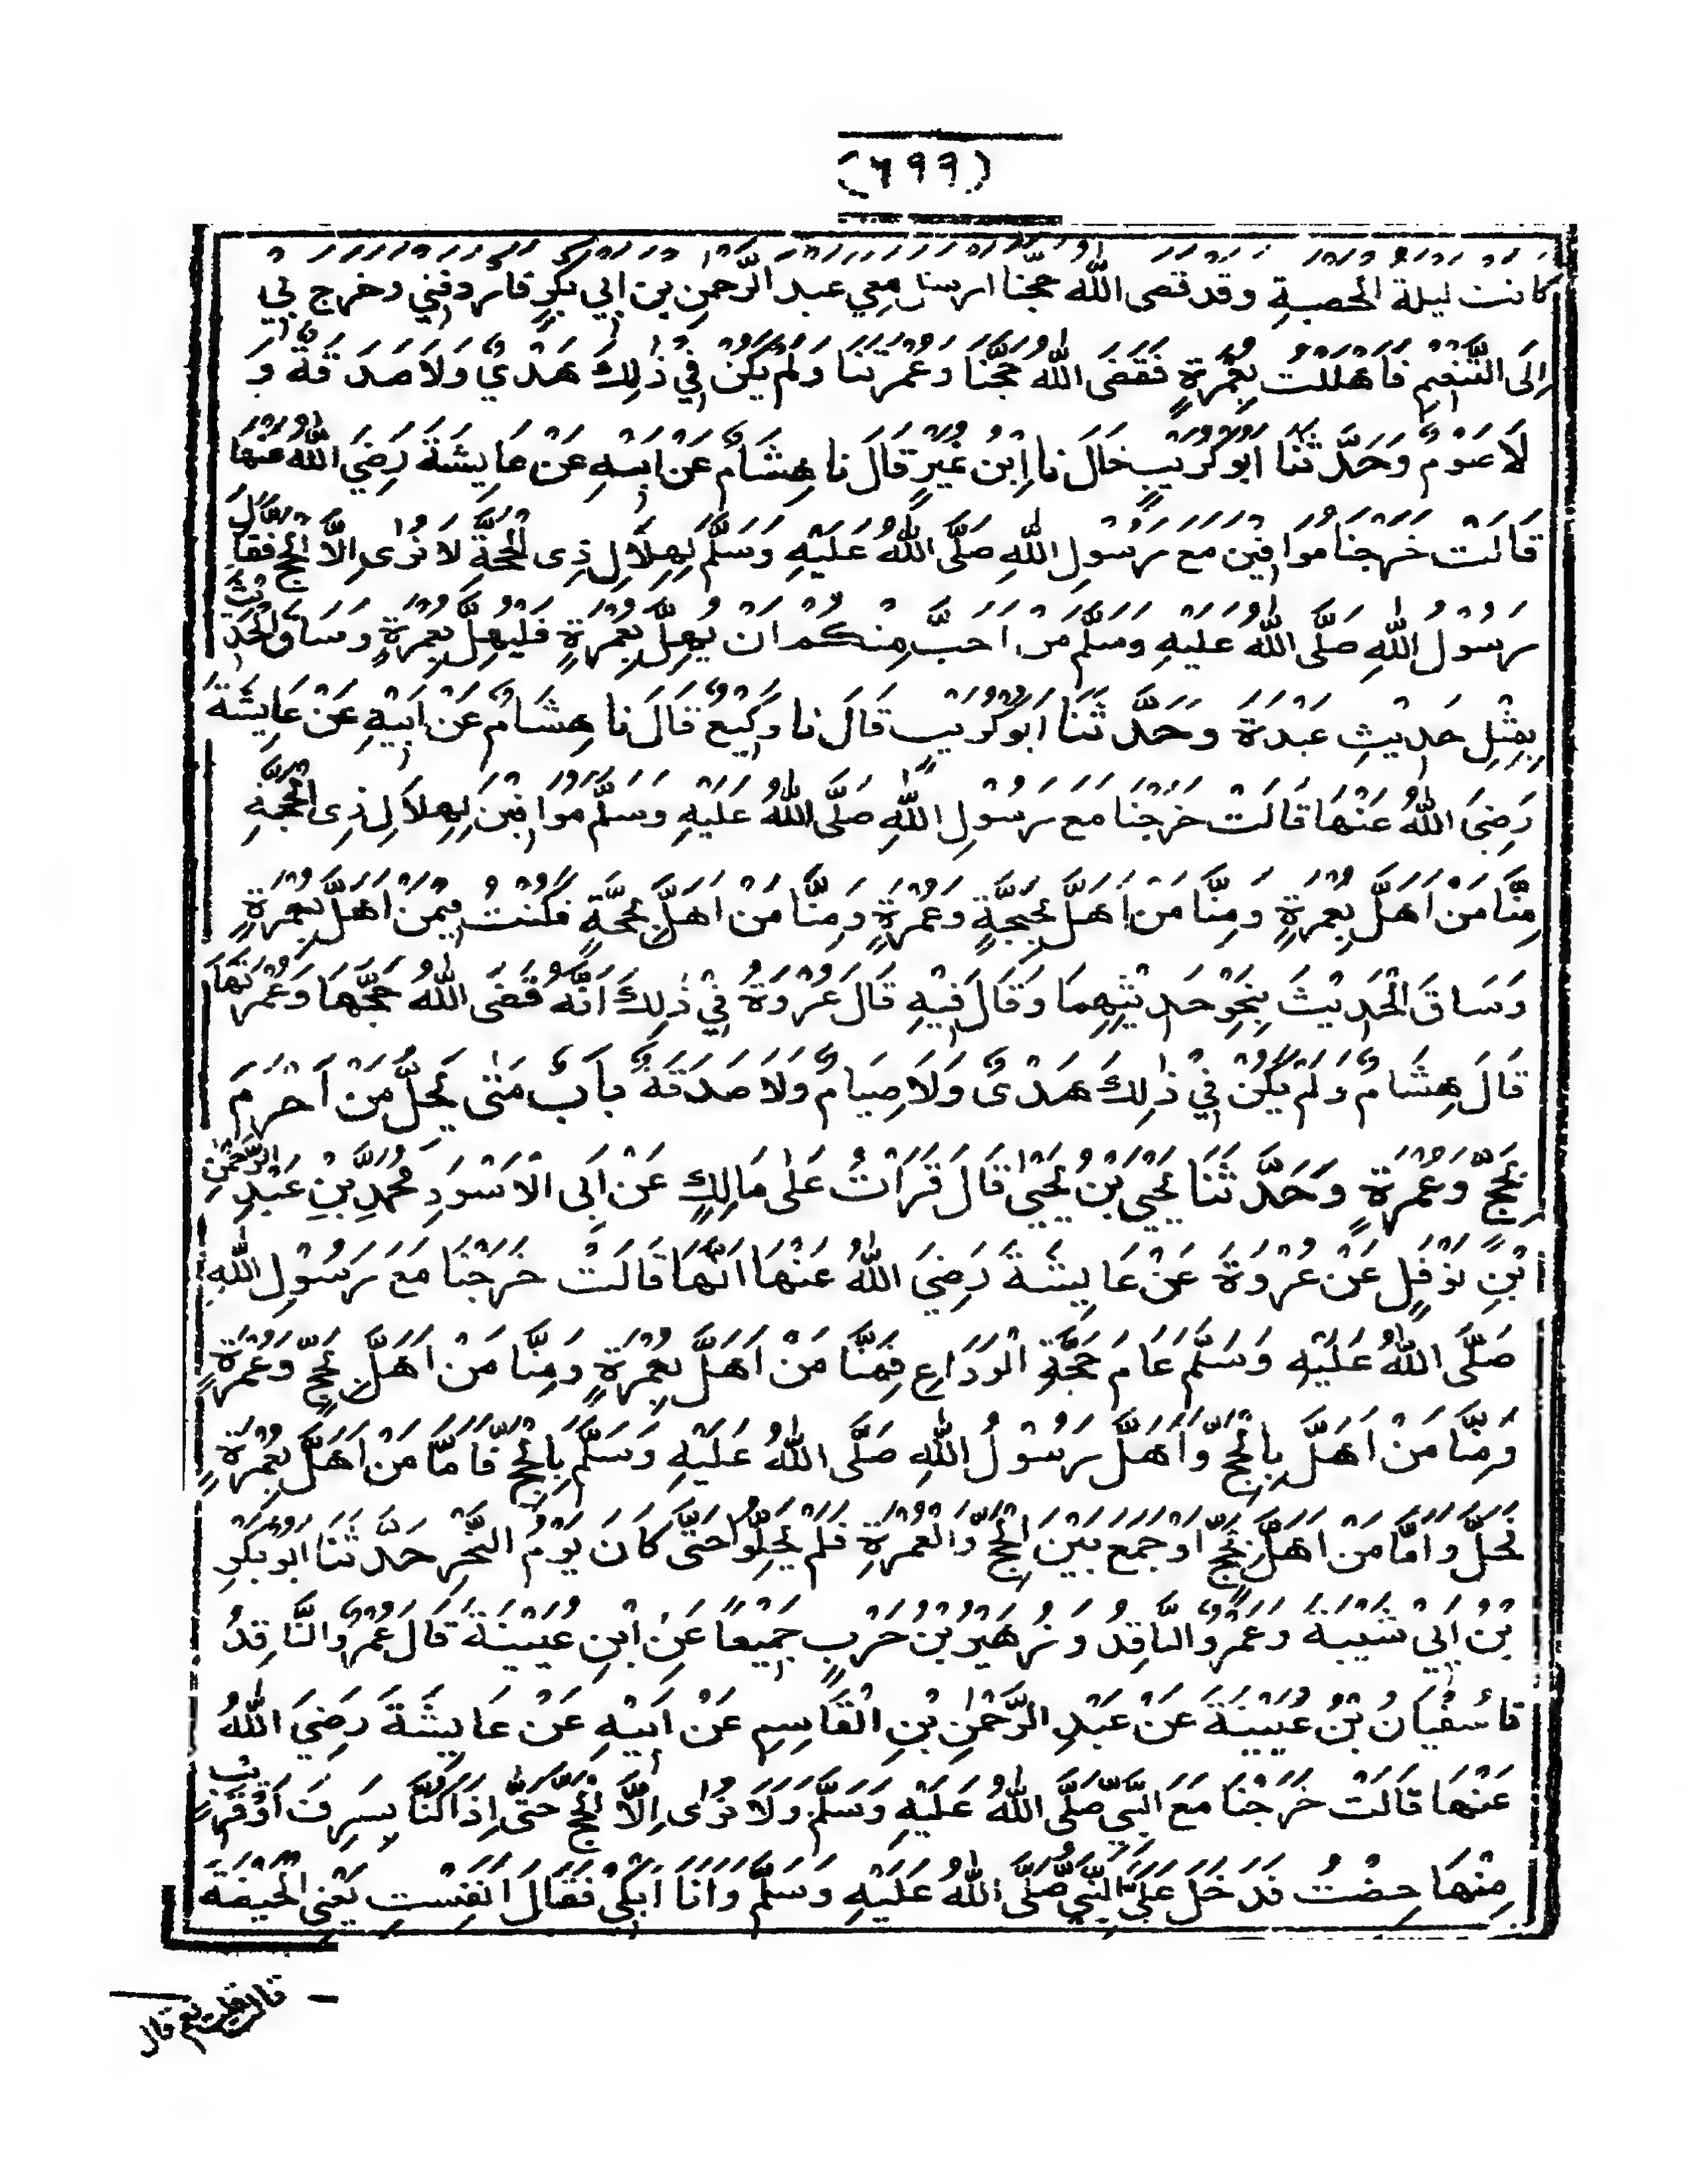 (٦٩٩)
كانت ليلة الحصبةِ وقد قضى الله حجّنا ارسل معي عبد الرّحمنِ بن ابي بكرٍ فاردفني وخرج بي
اِلَى التَّنْعِيْمِ فَاَهْلَلْتُ بِعُمْرَةٍ فَقَضَى اللّٰهُ حَجَّنَا وَعُمْرَتَنَا وَلَمْ يَكُنْ فِيْ ذٰلِكَ هَدْيٌ وَلَا صَدَقَةٌ وَ
لَا صَوْمٌ وَحَدَّثَنَا اَبُوْكُرَيْبٍ قَالَ نا اِبْنُ نُمَيْرٍ قَالَ نا هِشَامٌ عَنْ اَبِيْهِ عَنْ عَايِشَةَ رَضِيَ اللّٰهُ عَنْهَا
قَالَتْ خَرَجْنَا مُوَافِيْنَ مَعَ رَسُوْلِ اللّٰهِ صَلَّى اللّٰهُ عَلَيْهِ وَسَلَّمَ لِهِلَالِ ذِى الْحِجَّةِ لَا نُرٰى اِلَّا الْحَجَّ فَقَالَ
رَسُوْلُ اللّٰهِ صَلَّى اللّٰهُ عَلَيْهِ وَسَلَّمَ مَنْ اَحَبَّ مِنْكُمْ اَنْ يُهِلَّ بِعُمْرَةٍ فَلْيُهِلَّ بِعُمْرَةٍ وَسَاقَ الْحَدِيْثَ
بِمِثْلِ حَدِيْثِ عَبْدَةَ وَحَدَّثَنَا اَبُوْكُرَيْبٍ قَالَ نا وَكِيْعٌ قَالَ نا هِشَامٌ عَنْ اَبِيْهِ عَنْ عَايِشَةَ
رَضِيَ اللّٰهُ عَنْهَا قَالَتْ خَرَجْنَا مَعَ رَسُوْلِ اللّٰهِ صَلَّى اللّٰهُ عَلَيْهِ وَسَلَّمَ مُوَافِيْنَ لِهِلَالِ ذِى الْحِجَّةِ
مِنَّا مَنْ اَهَلَّ بِعُمْرَةٍ وَمِنَّا مَنْ اَهَلَّ بِحَجَّةٍ وَعُمْرَةٍ وَمِنَّا مَنْ اَهَلَّ بِحَجَّةٍ فَكُنْتُ فِيْمَنْ اَهَلَّ بِعُمْرَةٍ
وَسَاقَ الْحَدِيْثَ بِنَحْوِ حَدِيْثِهِمَا وَقَالَ فِيْهِ قَالَ عُرْوَةُ فِيْ ذٰلِكَ اَنَّهُ قَضَى اللّٰهُ حَجَّهَا وَعُمْرَتَهَا
قَالَ هِشَامٌ وَلَمْ يَكُنْ فِيْ ذٰلِكَ هَدْىٌ وَلَا صِيَامٌ وَلَا صَدَقَةٌ بَابٌ مَتٰى يَحِلُّ مَنْ اَحْرَمَ
بِحَجٍّ وَعُمْرَةٍ وَحَدَّثَنَا يَحْيَى بْنُ يَحْيٰى قَالَ قَرَاْتُ عَلٰى مَالِكٍ عَنْ اَبِى الْاَسْوَدِ مُحَمَّدِ بْنِ عَبْدِ الرَّحْمٰنِ
بْنِ نَوْفَلٍ عَنْ عُرْوَةَ عَنْ عَايِشَةَ رَضِيَ اللّٰهُ عَنْهَا اَنَّهَا قَالَتْ خَرَجْنَا مَعَ رَسُوْلِ اللّٰهِ
صَلَّى اللّٰهُ عَلَيْهِ وَسَلَّمَ عَامَ حَجَّةِ الْوَدَاعِ فَمِنَّا مَنْ اَهَلَّ بِعُمْرَةٍ وَمِنَّا مَنْ اَهَلَّ بِحَجٍّ وَعُمْرَةٍ
وَمِنَّا مَنْ اَهَلَّ بِالْحَجِّ وَاَهَلَّ رَسُوْلُ اللّٰهِ صَلَّى اللّٰهُ عَلَيْهِ وَسَلَّمَ بِالْحَجِّ فَاَمَّا مَنْ اَهَلَّ بِعُمْرَةٍ
فَحَلَّ وَاَمَّا مَنْ اَهَلَّ بِحَجٍّ اَوْ جَمَعَ بَيْنَ الْحَجِّ وَالْعُمْرَةِ فَلَمْ يَحِلُّوْا حَتّٰى كَانَ يَوْمُ النَّحْرِ حَدَّثَنَا اَبُوْبَكْرِ
بْنُ اَبِيْ شَيْبَةَ وَعَمْرٌو النَّاقِدُ وَ زُهَيْرُ بْنُ حَرْبٍ جَمِيْعًا عَنِ ابْنِ عُيَيْنَةَ قَالَ عَمْرٌو النَّاقِدُ
نا سُفْيَانُ بْنُ عُيَيْنَةَ عَنْ عَبْدِ الرَّحْمٰنِ بْنِ الْقَاسِمِ عَنْ اَبِيْهِ عَنْ عَايِشَةَ رَضِيَ اللّٰهُ
عَنْهَا قَالَتْ خَرَجْنَا مَعَ النَّبِيِّ صَلَّى اللّٰهُ عَلَيْهِ وَسَلَّمَ وَلَا نُرٰى اِلَّا الْحَجَّ حَتّٰى اِذَا كُنَّا بِسَرِفَ اَوْ قَرِيْبٍ
مِنْهَا حِضْتُ فَدَخَلَ عَلَيَّ النَّبِيُّ صَلَّى اللّٰهُ عَلَيْهِ وَسَلَّمَ وَاَنَا اَبْكِيْ فَقَالَ اَنَفِسْتِ يَعْنِى الْحَيْضَةَ
قالت قلت نعم قال